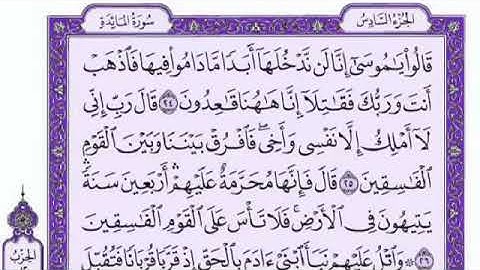 سُورَةُ المَائِدَةِ
الجُزْءُ السَّادِسُ
قَالُوا۟ يَـٰمُوسَىٰٓ إِنَّا لَن نَّدْخُلَهَآ أَبَدًا مَّا دَامُوا۟ فِيهَا فَٱذْهَبْ
أَنتَ وَرَبُّكَ فَقَـٰتِلَآ إِنَّا هَـٰهُنَا قَـٰعِدُونَ ٢٤ قَالَ رَبِّ إِنِّى
لَآ أَمْلِكُ إِلَّا نَفْسِى وَأَخِى ۖ فَٱفْرُقْ بَيْنَنَا وَبَيْنَ ٱلْقَوْمِ
ٱلْفَـٰسِقِينَ ٢٥ قَالَ فَإِنَّهَا مُحَرَّمَةٌ عَلَيْهِمْ ۛ أَرْبَعِينَ سَنَةً ۛ
يَتِيهُونَ فِى ٱلْأَرْضِ ۚ فَلَا تَأْسَ عَلَى ٱلْقَوْمِ ٱلْفَـٰسِقِينَ
٢٦ وَٱتْلُ عَلَيْهِمْ نَبَأَ ٱبْنَىْ ءَادَمَ بِٱلْحَقِّ إِذْ قَرَّبَا قُرْبَانًا فَتُقُبِّلَ
الحِزْبُ